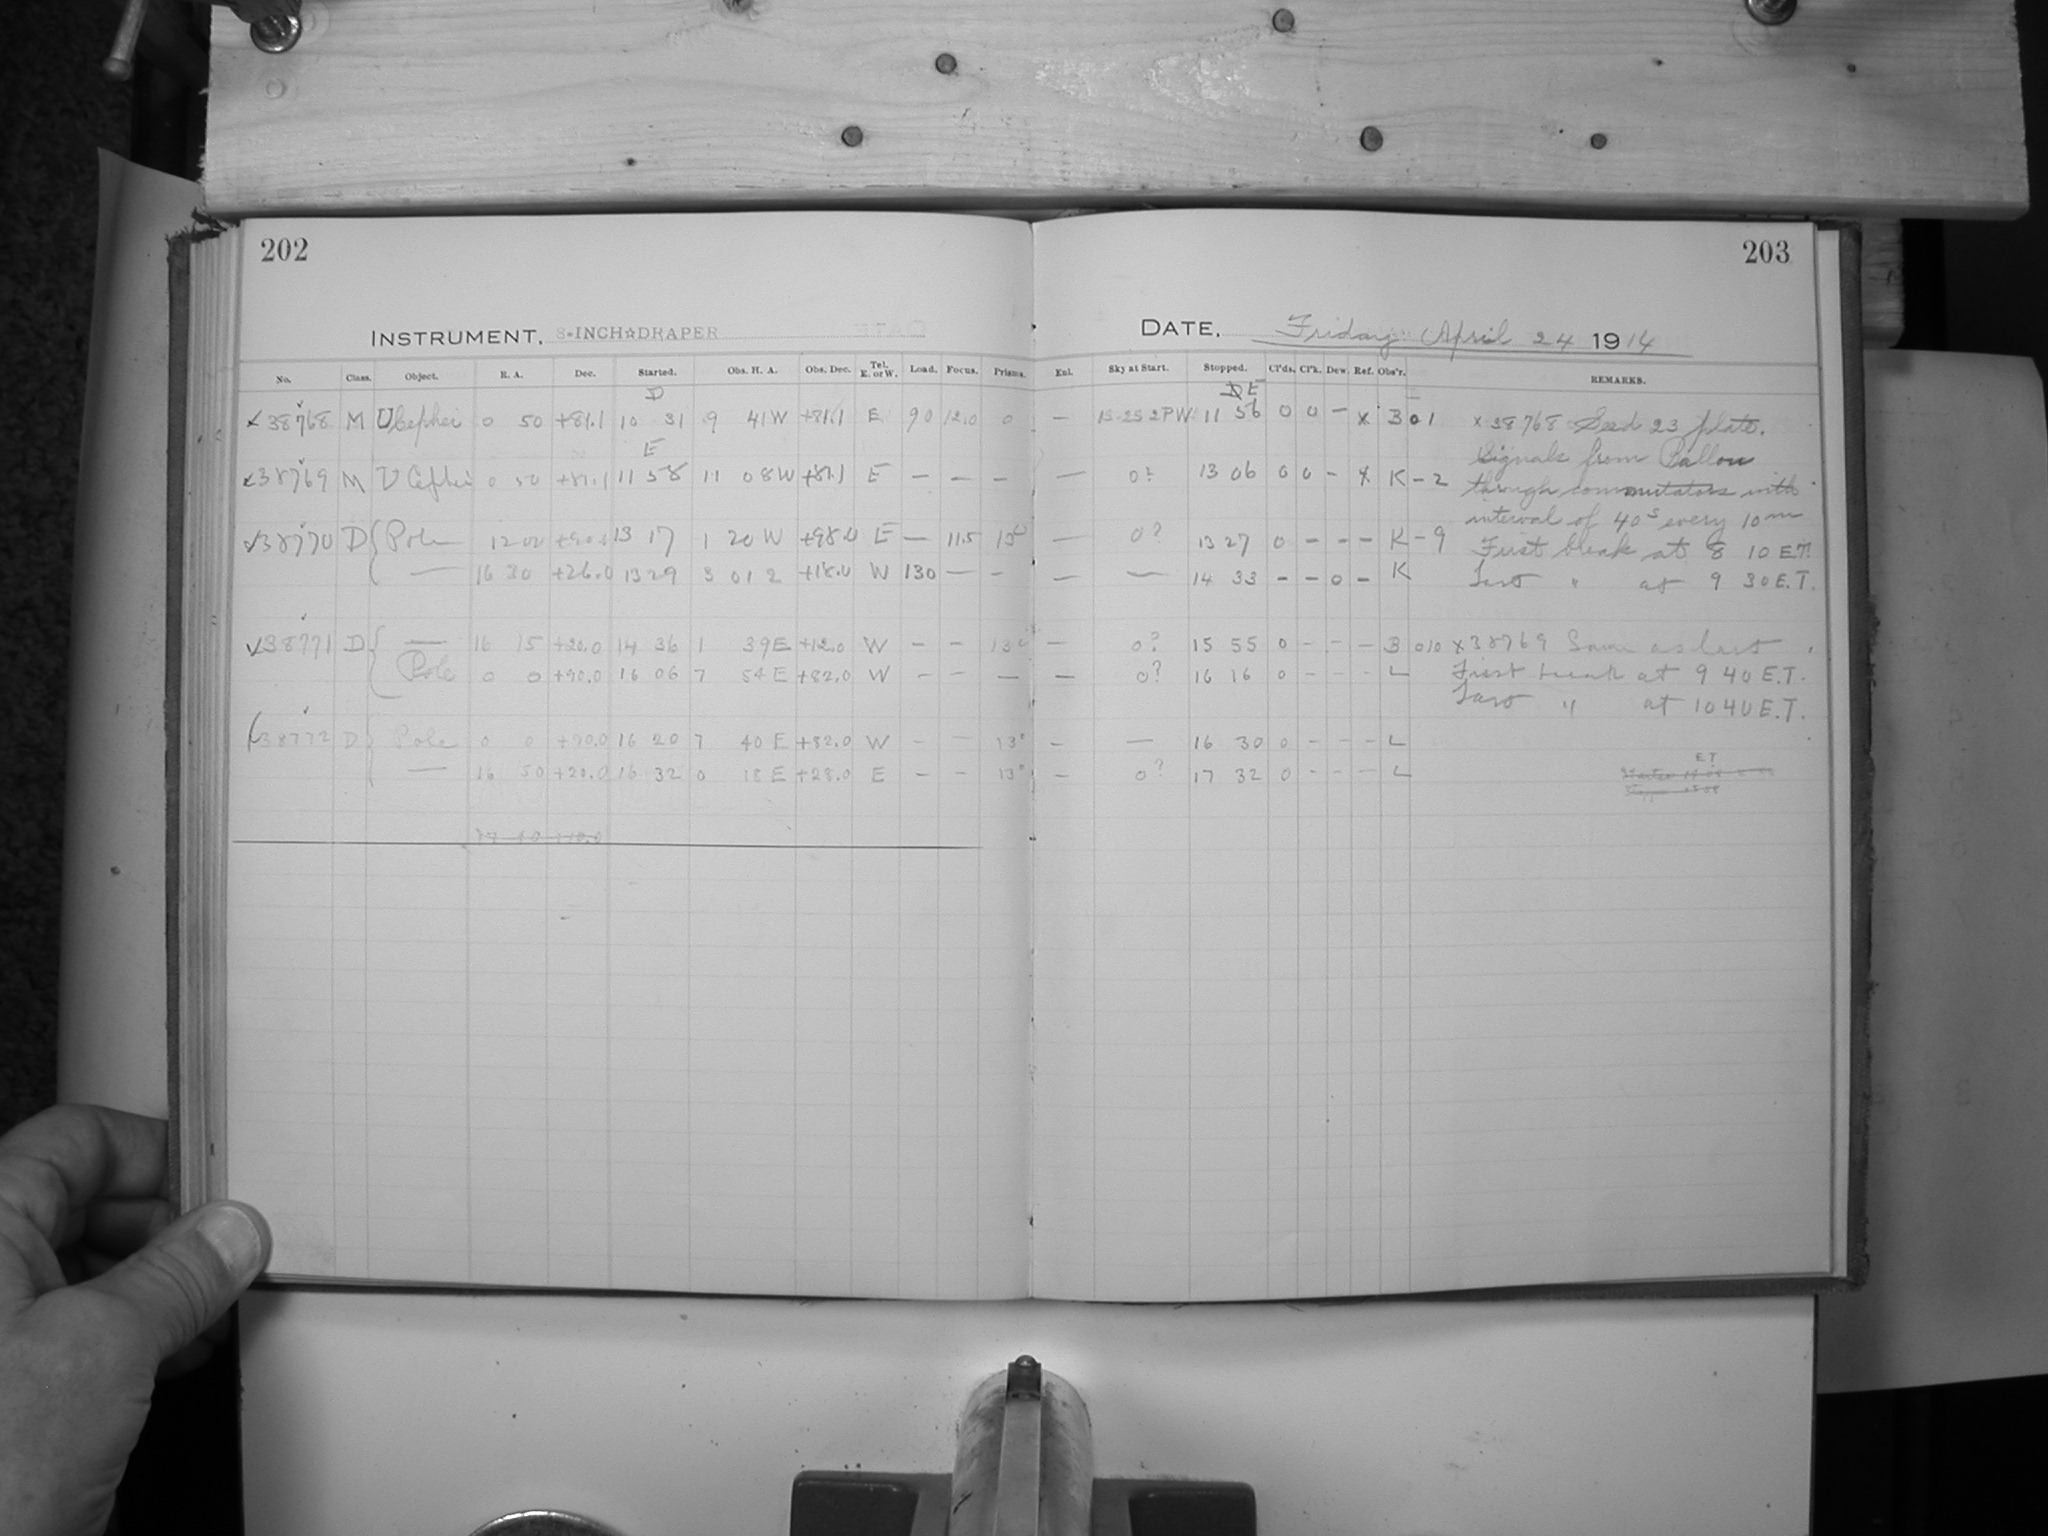 202
203
INSTRUMENT, 8-INCH☆DRAPER
DATE, Friday April 24 1914
No. Class. Object. R. A. Dec. Started. Obs. H. A. Obs. Dec. Tel. E. or W. Load. Focus. Prisms. Enl. Sky at Start. Stopped. Cl'ds. Cl'k. Dew. Ref. Obs'r. REMARKS.
D
E
x 38768 M U Cephei 0 50 +81.1 10 31 9 41 W +81.1 E 90 12.0 0 — 11 56 0 0 — x B 01 x 38768 Seed 23 plate.
Signals from
E
x 38769 M U Cephei 0 50 +81.1 11 58 11 08 W +81.1 E — — — — 0? 13 06 0 0 — x K – 2
through commutators with
interval of 40s every 10m
38770 D { Pole 12 00 13 17 1 20 W E — 11.5 13° — 0? 13 27 0 – – – K – 9 First break at 8 10 E.T.
— 16 30 +26.0 13 29 3 01 +18.0 W 130 — – — — 14 33 – – 0 – K Last " at 9 30 E.T.
38771 D { — 16 15 +20.0 14 36 1 39 E +12.0 W – – 13° — 0? 15 55 0 – – – B 010 x 38769 Same as last
Pole 0 0 +90.0 16 06 7 54 E +82.0 W – – — — 0? 16 16 0 – – – L First break at 9 40 E.T.
Last " at 10 40 E.T.
38772 D { Pole 0 0 +90.0 16 20 7 40 E +82.0 W – – 13° – — 16 30 0 – – – L
— 16 50 +20.0 16 32 0 18 E +28.0 E – – 13° — 0? 17 32 0 – – – L
E T